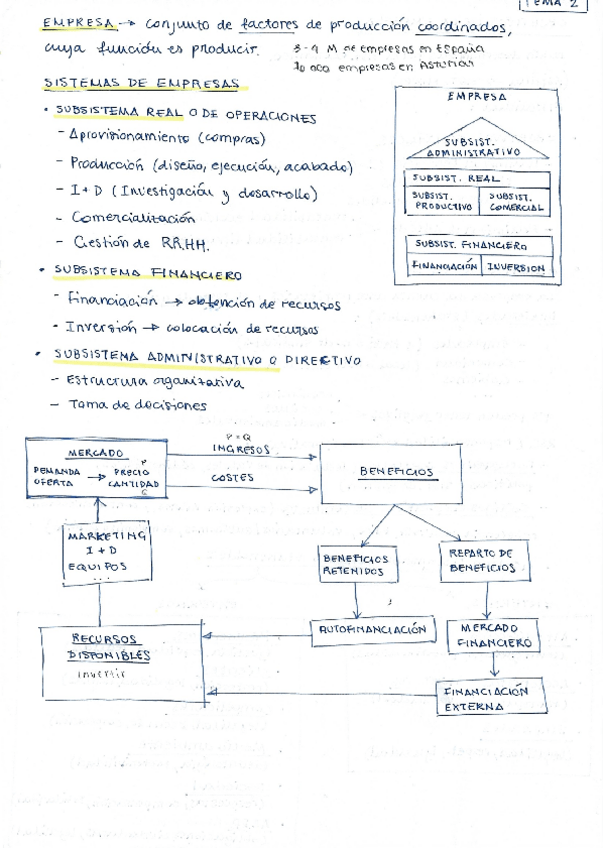 TEMA 2
EMPRESA → conjunto de factores de producción coordinados,
cuya función es producir.
3-4 M de empresas en España
70 000 empresas en Asturias
SISTEMAS DE EMPRESAS
• SUBSISTEMA REAL O DE OPERACIONES
- Aprovisionamiento (compras)
- Producción (diseño, ejecución, acabado)
- I+D (Investigación y desarrollo)
- Comercialización
- Gestión de RR.HH.
• SUBSISTEMA FINANCIERO
- Financiación → obtención de recursos
- Inversión → colocación de recursos
• SUBSISTEMA ADMINISTRATIVO O DIRECTIVO
- Estructura organizativa
- Toma de decisiones
EMPRESA
SUBSIST.
ADMINISTRATIVO
SUBSIST. REAL
SUBSIST. PRODUCTIVO
SUBSIST. COMERCIAL
SUBSIST. FINANCIERO
FINANCIACIÓN
INVERSION
MERCADO
DEMANDA OFERTA → PRECIO P CANTIDAD
P × Q
INGRESOS
COSTES
BENEFICIOS
MARKETING
I + D
EQUIPOS
...
BENEFICIOS RETENIDOS
REPARTO DE BENEFICIOS
AUTOFINANCIACIÓN
MERCADO FINANCIERO
RECURSOS
DISPONIBLES
invertir
FINANCIACIÓN
EXTERNA